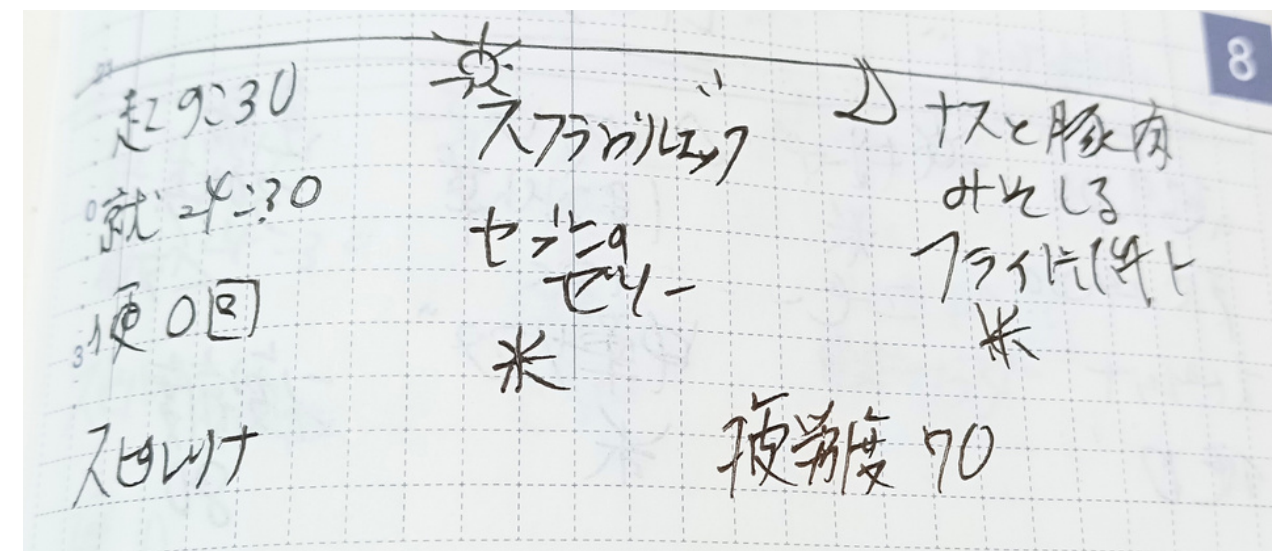 8
起 9:30
就 4:30
便 0回
スピルリナ
スクランブルエッグ
ゼリー
米
ナスと豚肉
みそしる
フライドポテト
米
疲労度 70